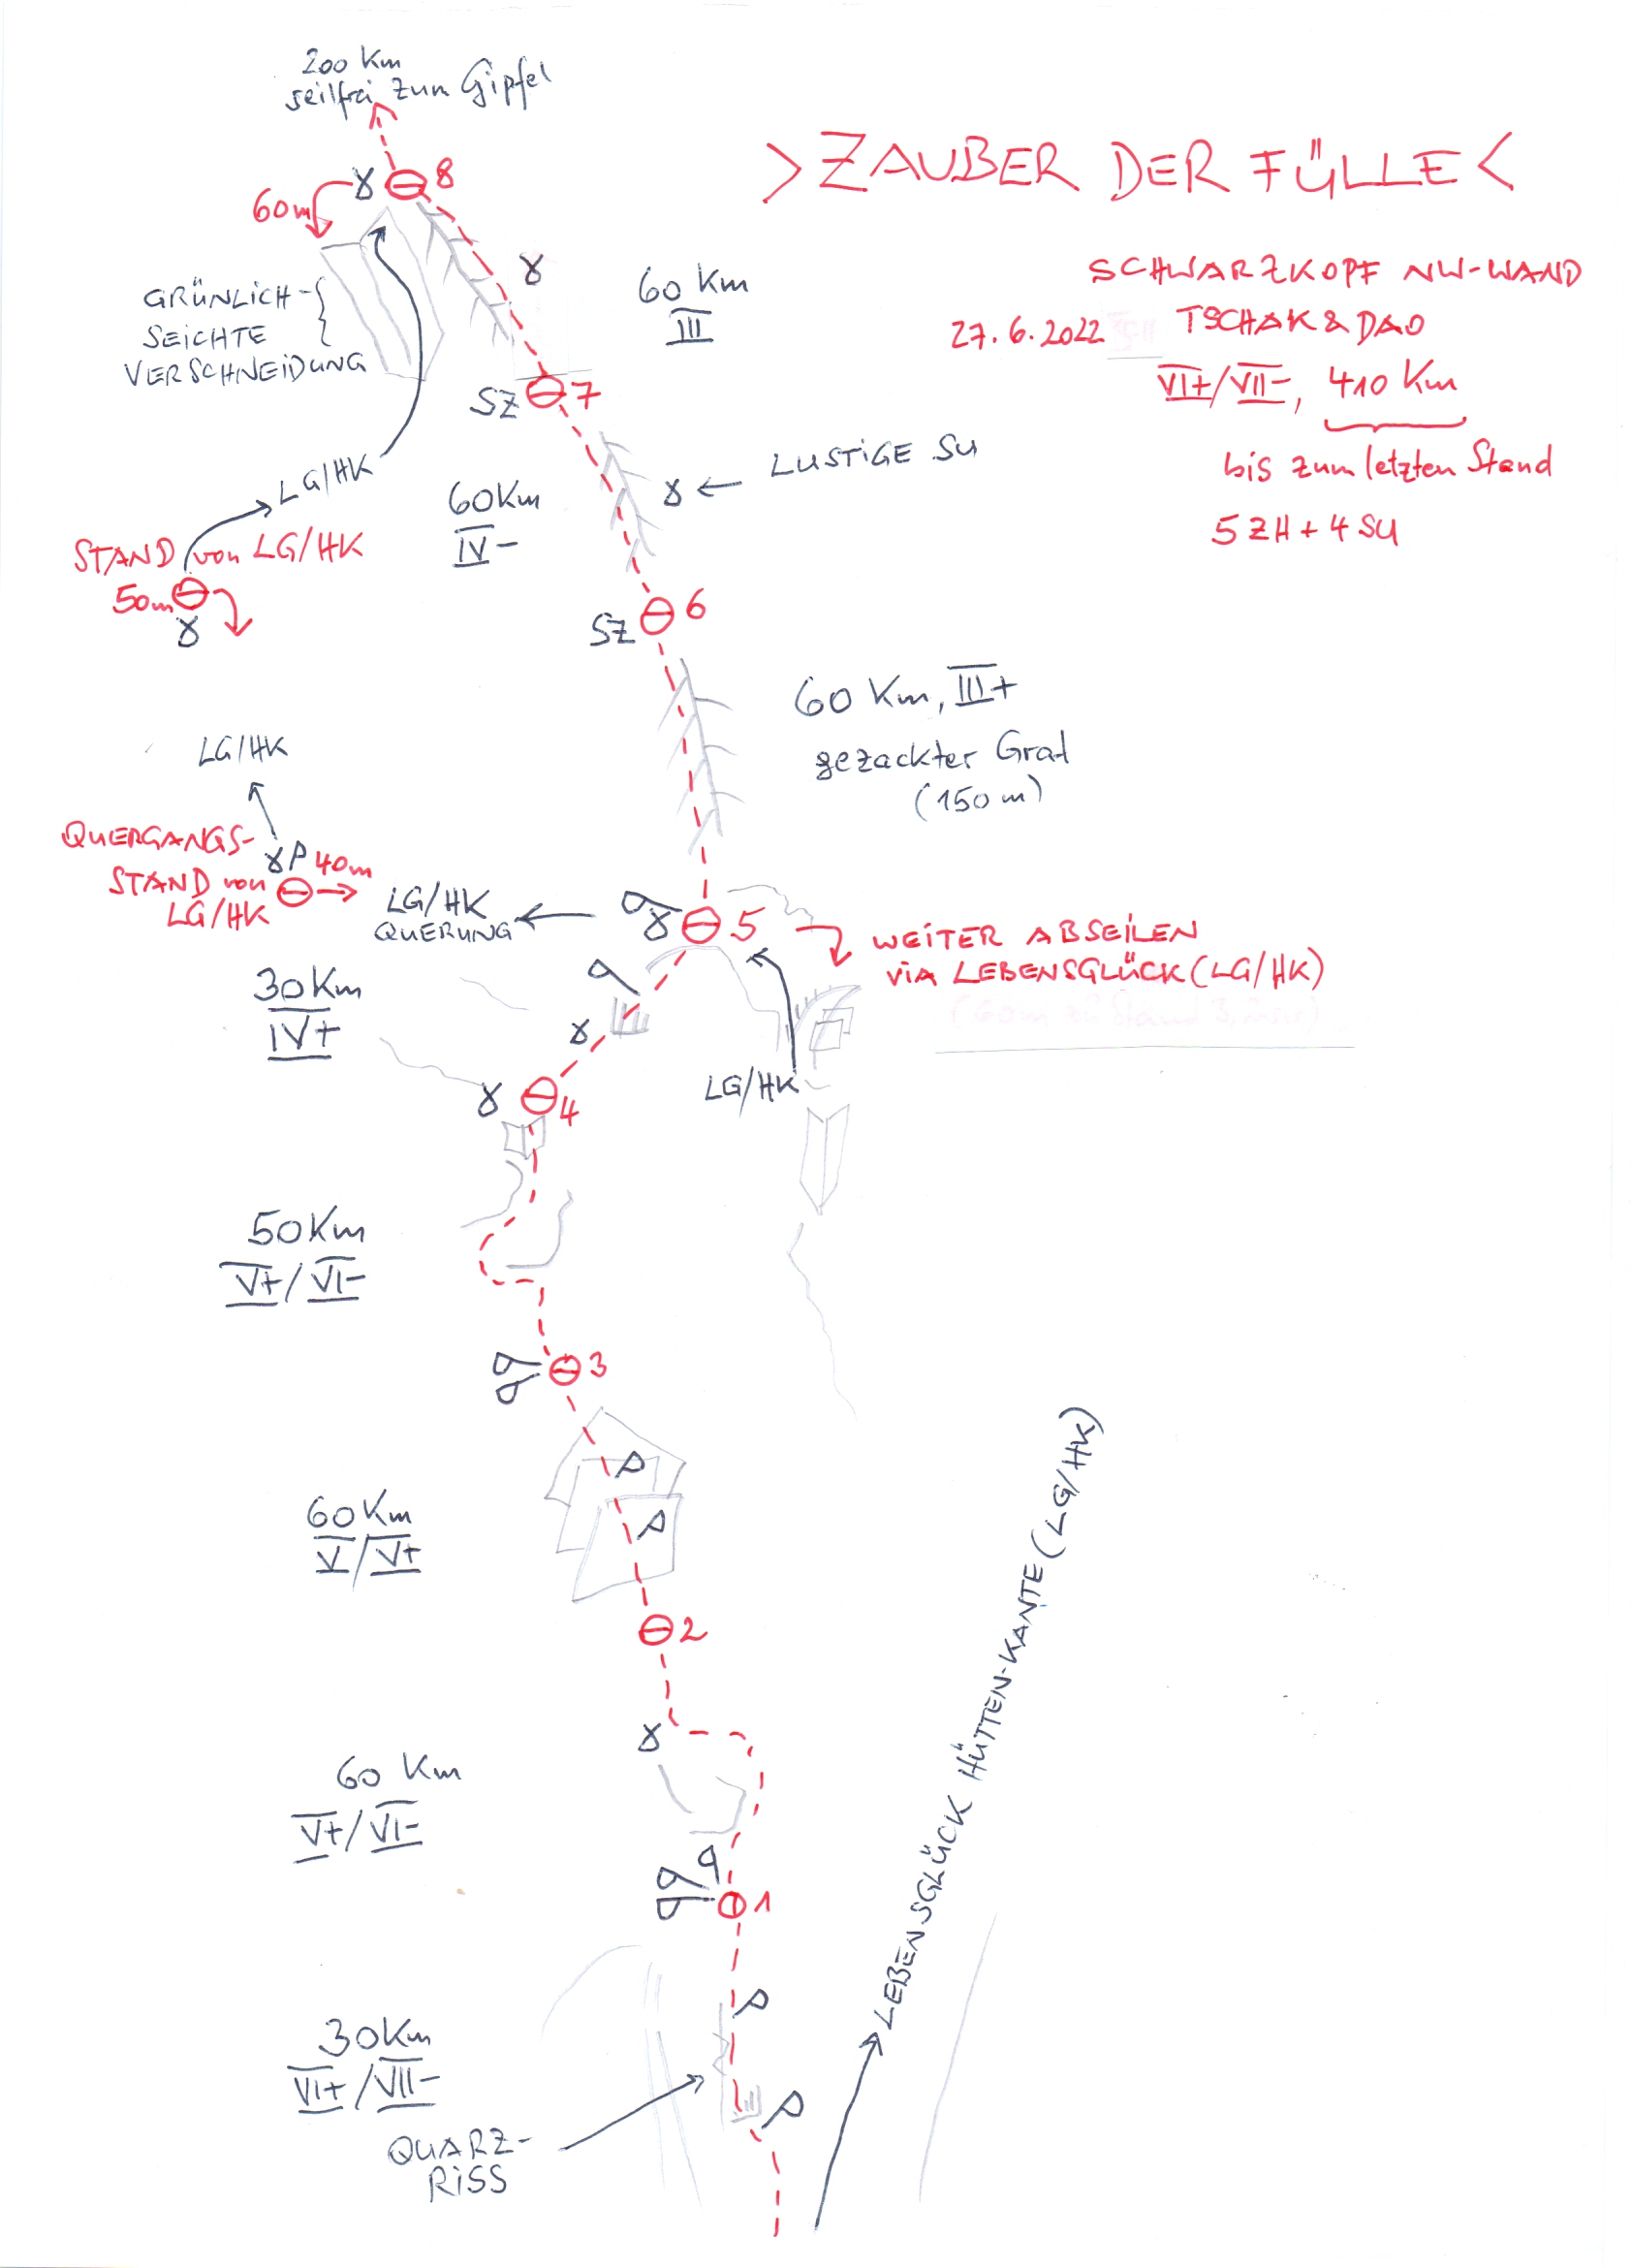 200 Km
seilfrei zum Gipfel
>ZAUBER DER FÜLLE<
8
60m
SCHWARZKOPF NW-WAND
27.6.2022 TSCHAK & DAO
VI+/VII-, 410 Km
bis zum letzten Stand
5 ZH + 4 SU
60 Km
III
GRÜNLICH-
SEICHTE
VERSCHNEIDUNG
SZ 7
LUSTIGE SU
LG/HK
60Km
IV-
STAND von LG/HK
50m
SZ 6
60 Km, III+
gezackter Grat
(150 m)
LG/HK
QUERGANGS-
STAND von
LG/HK
40m
LG/HK
QUERUNG
5
WEITER ABSEILEN
VIA LEBENSGLÜCK (LG/HK)
30Km
IV+
4
LG/HK
50Km
V+/VI-
3
60Km
V/V+
2
60 Km
V+/VI-
1
LEBENSGLÜCK HÜTTEN-KANTE (LG/HK)
30Km
VI+/VII-
QUARZ-
RISS